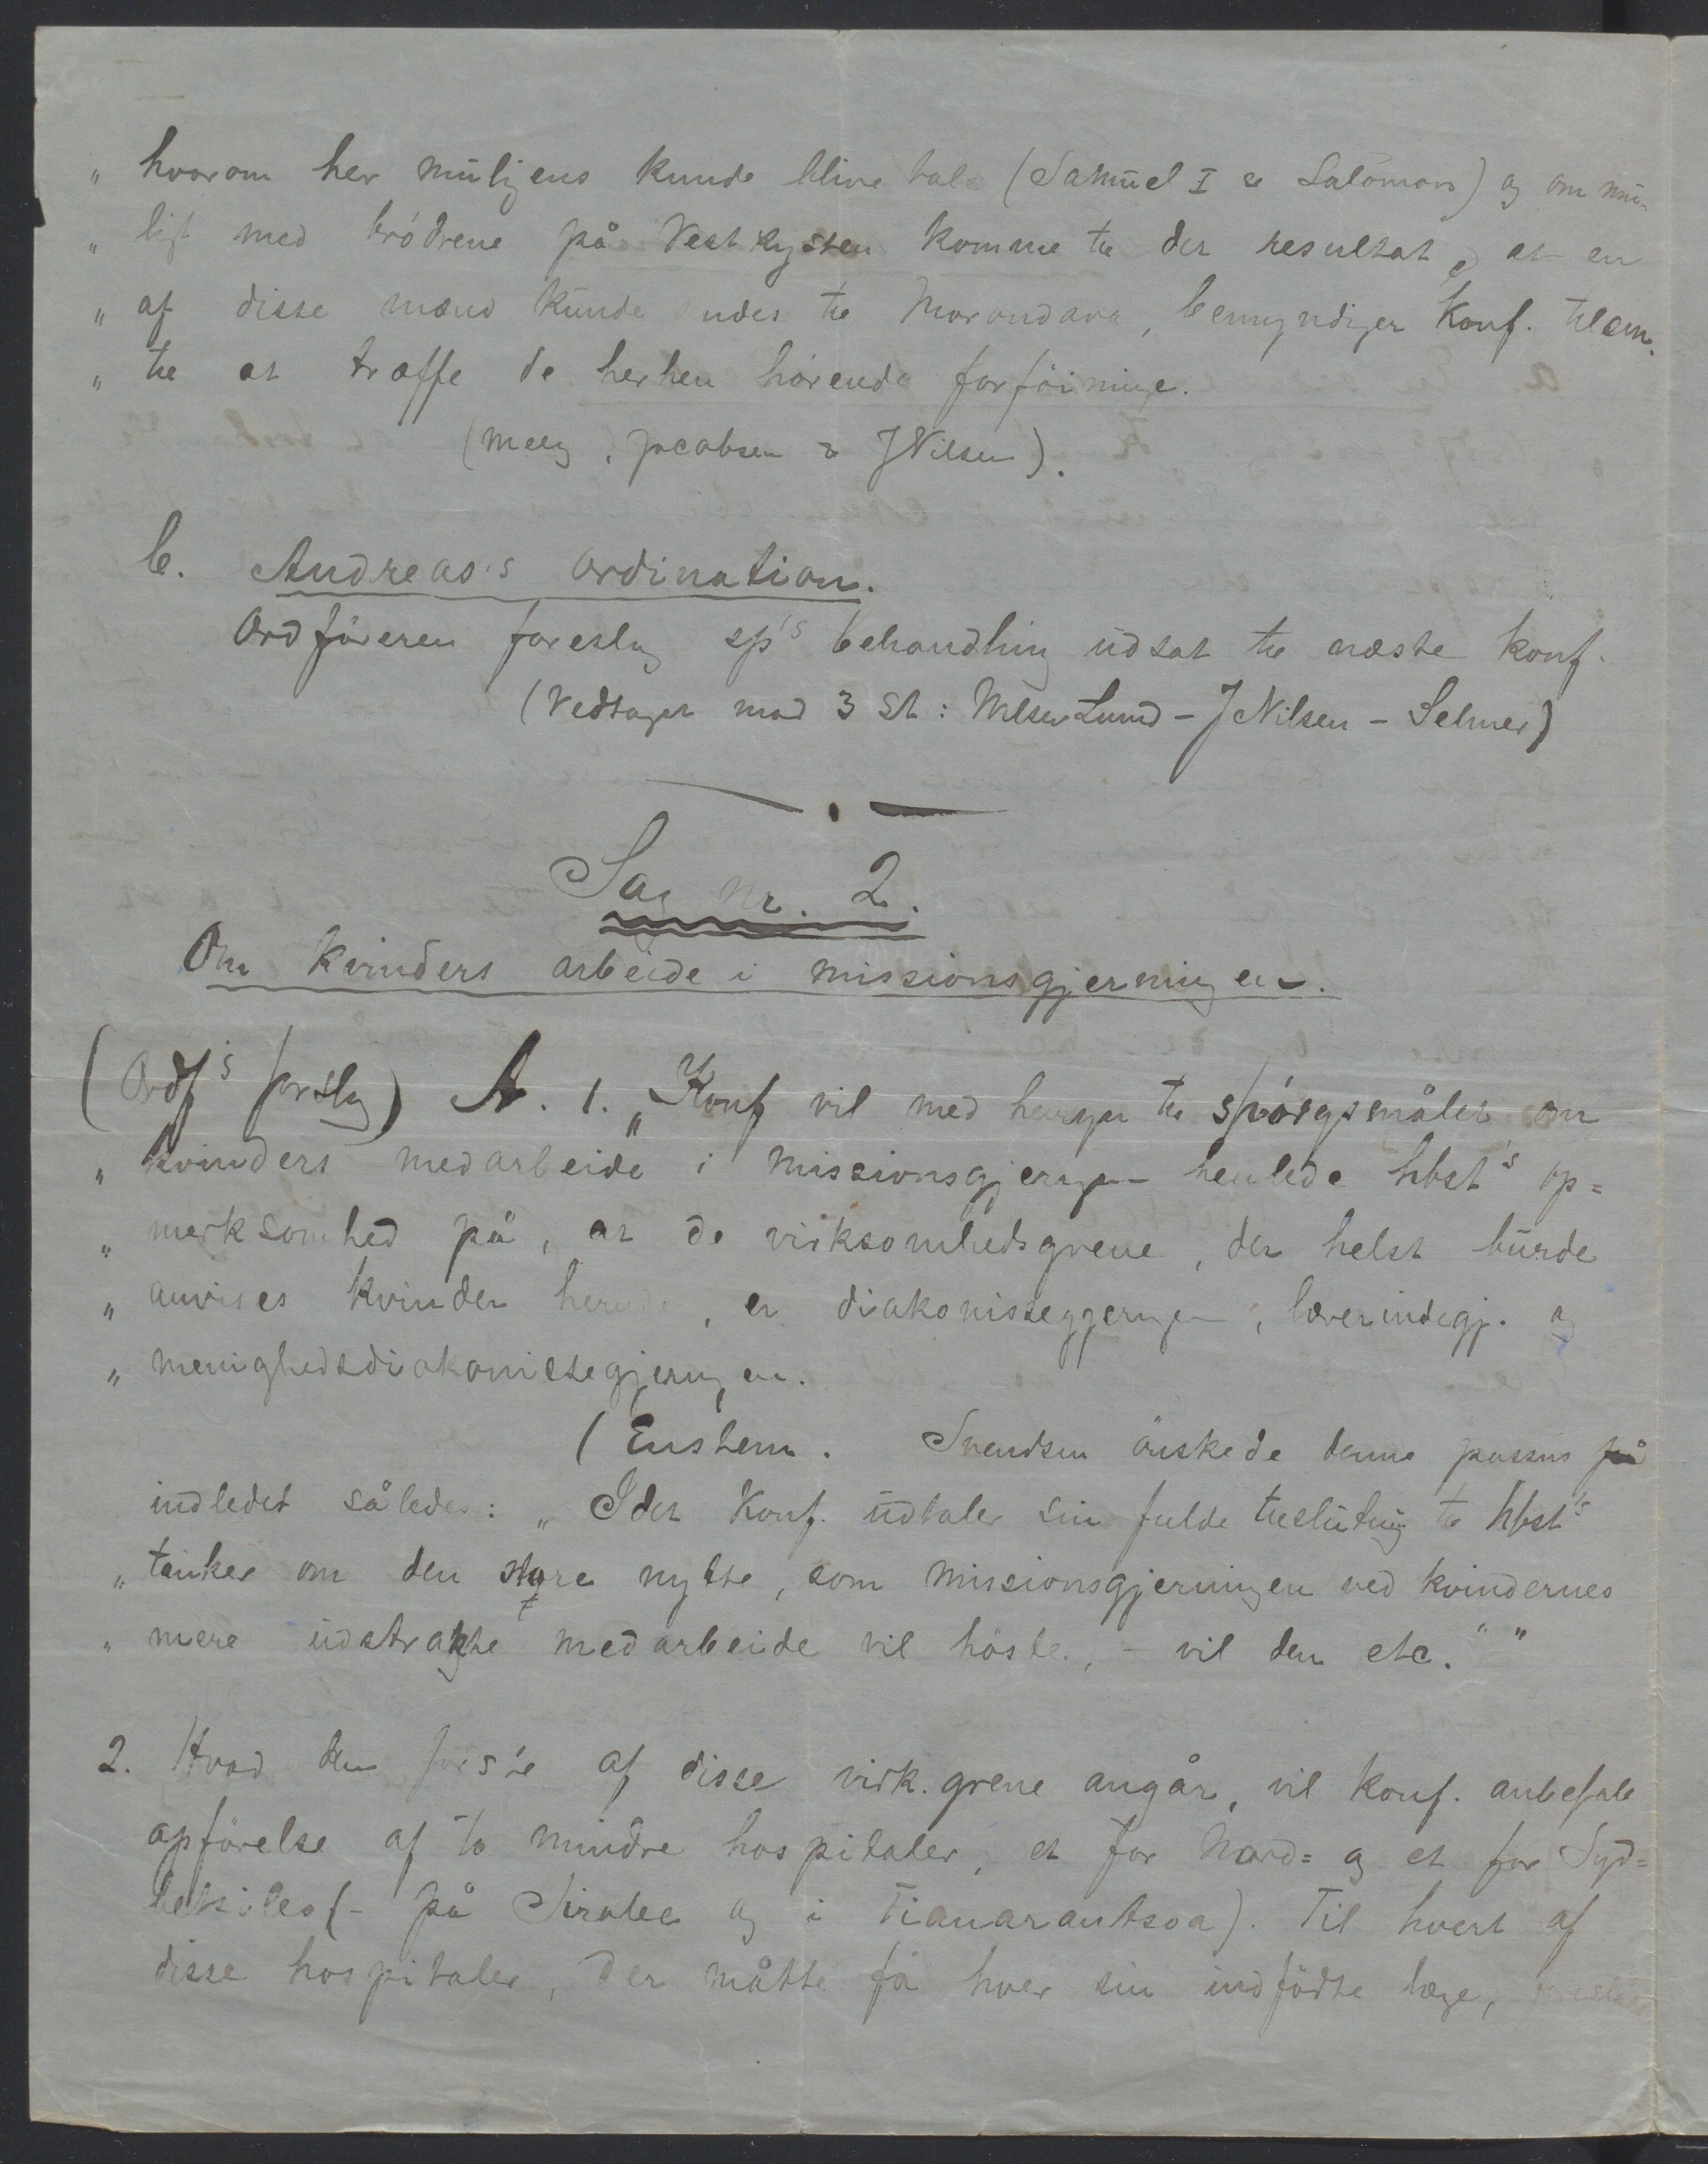 „ hvorom her muligens kunde blive tale (Samuel I & Salomon) og om mu-
„ ligt med brödrene på Vestkysten komme til det resultat, at en
„ af disse mænd kunde sendes til Morondava, bemyndiger Konf. tilsm.
„ til at træffe de herhen hörende forföininge.
(Meeg, Jacobsen & JNilsen).
b. Andreas's ordination.
Ordföreren foreslog sp's behandling udsat til næste konf.
(Vedtaget mod 3 St: Nilsen Lund – J Nilsen – Selmer)
Sag nr. 2.
Om kvinders arbeide i missionsgjerningen.
(Ordf's forslag) A. 1. „Konf vil med hensyn til spörgsmålet om
„ kvinders medarbeide i missionsgjerngen henlede hbst's op=
„ merksomhed på, at de virksomhedsgrene, der helst burde
„ anvises kvinder herude, er diakonissegjerngen, lærerindegj. og
„ menighedsdiakonissegjerngen.
(Enstem. Svendsen önskede denne passus
indledet således: „ Idet Konf. udtaler sin fulde tilslutning til hbst's
„ tanker om den store nytte, som missionsgjerningen ved kvindernes
„ mere udstrakte medarbeide vil höste, – vil den etc." "
2. Hvad den förste af disse virk. grene angår, vil konf. anbefale
opförelse af to mindre hospitaler, et for Nord= og et for Syd=
betsileo (– på Sirabe og i Fianarantsoa). Til hvert af
disse hospitaler, der måtte få hver sin indfödte læge, foreslåes